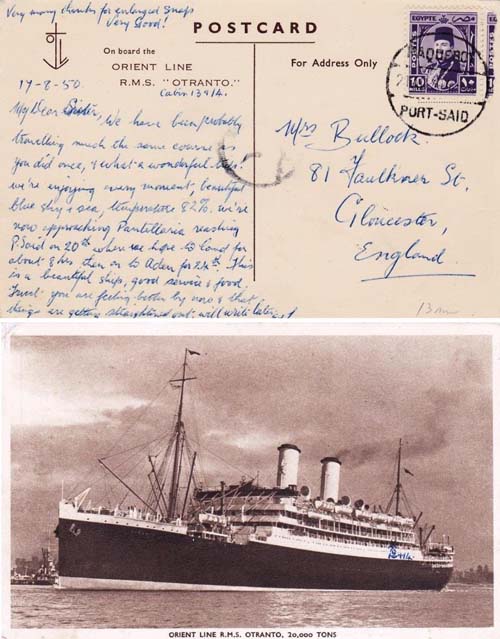 Very many thanks for enlarged snaps
Very Good!
POSTCARD
On board the
ORIENT LINE
R.M.S. "OTRANTO."
Cabin 139/4.
For Address Only
EGYPTE
10 MILLS
PAQUEBOT
PORT-SAID
17-8-50.
My Dear We have been probably
travelling much the same course as
you did once, & what a wonderful trip
we're enjoying every moment, beautiful
blue sky & sea, temperature 82°. We're
now approaching Pantillaria reaching
P. Said on 20th where we hope to land for
about 8 hrs. then on to Aden for 24th. This
is a beautiful ship, good service & food.
Trust you are feeling better by now & that
things are getting straightened out. will write later
Mrs Bullock.
81 Faulkner St,
Gloucester,
England.
ORIENT LINE R.M.S. OTRANTO, 20,000 TONS